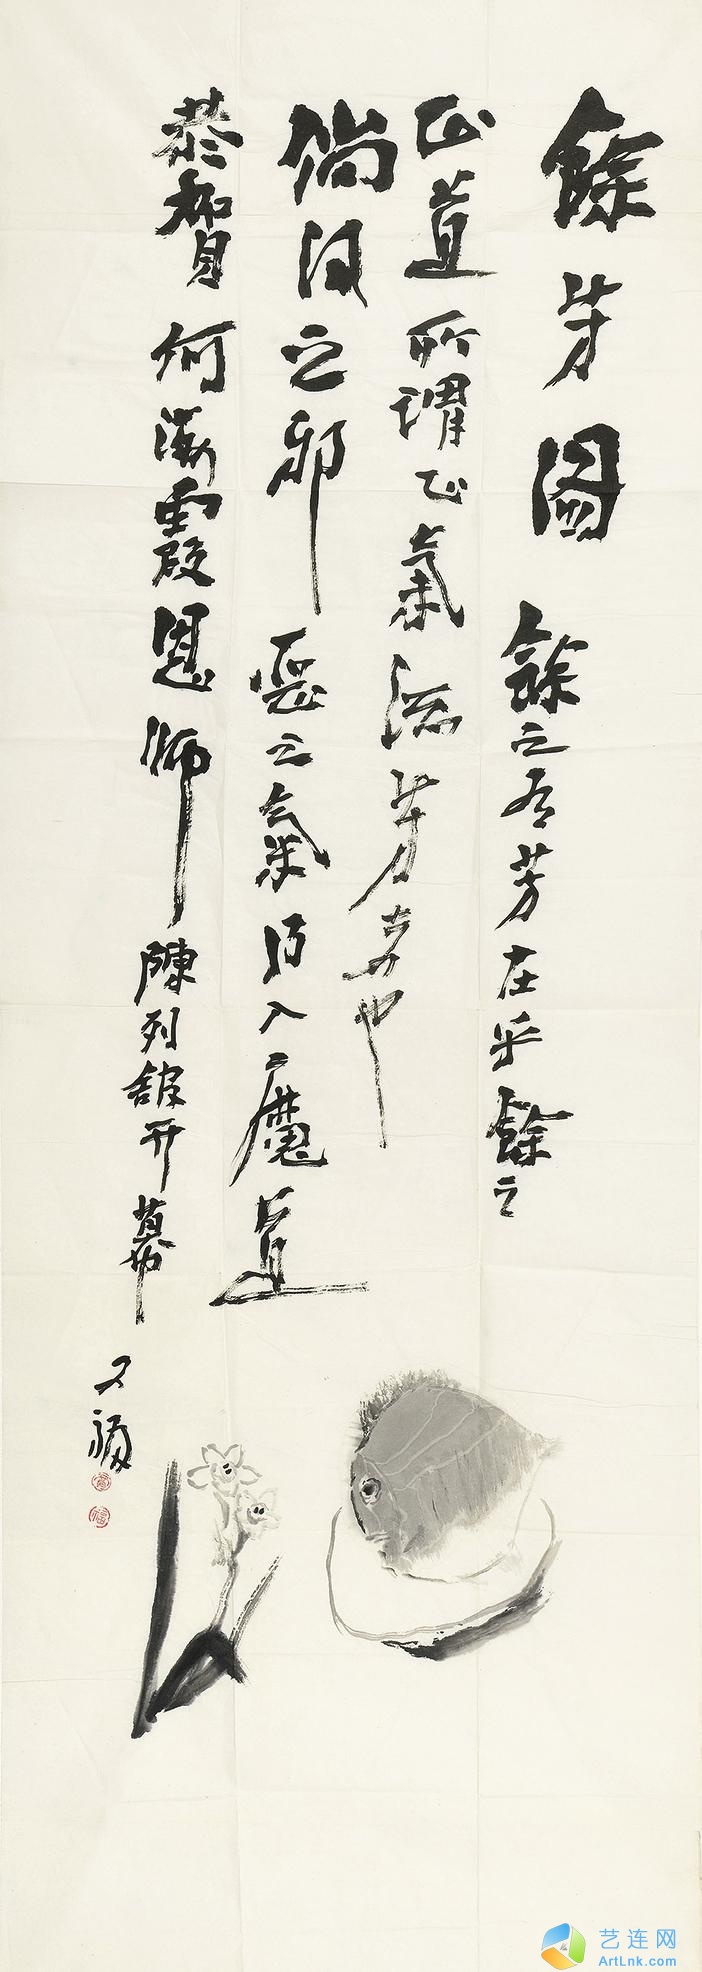 餘芳圖
餘之有芳在乎餘之
正道所謂正氣流芳者也
倘之邪惡之氣入魔道
恭賀何海霞恩師陳列館開幕
又福
福
艺连网
ArtLnk.com